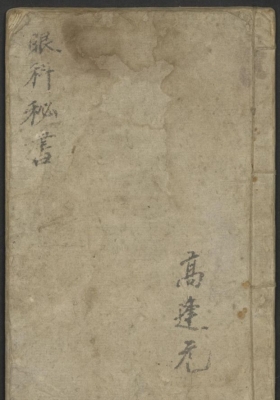 眼科秘書
高逢元